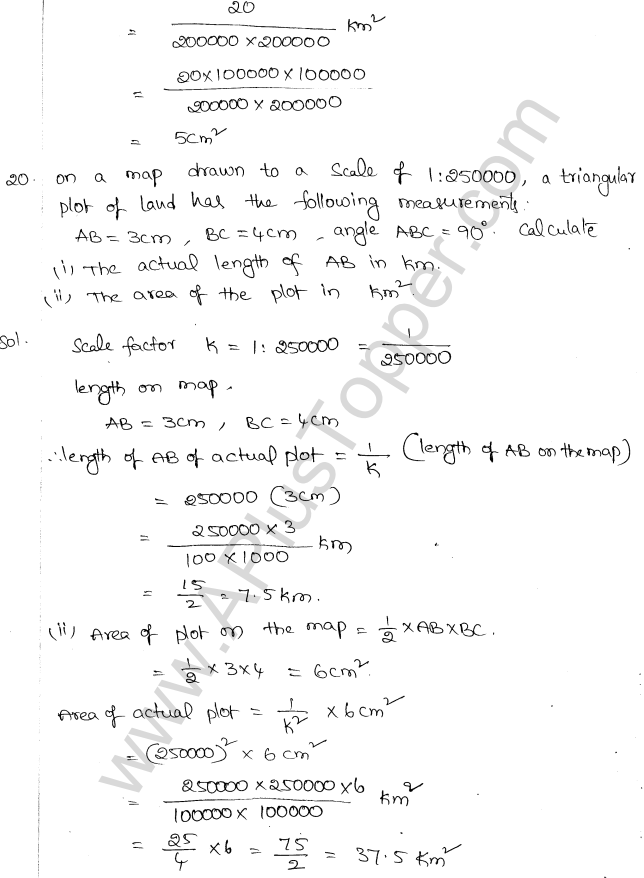 = 20 / 200000 × 200000 Km²
= 20 × 100000 × 100000 / 200000 × 200000
= 5cm²
20. on a map drawn to a scale of 1:250000, a triangular
plot of land has the following measurements:
AB = 3cm, BC = 4cm, angle ABC = 90°. Calculate
(i) The actual length of AB in km.
(ii) The area of the plot in Km².
Sol. Scale factor K = 1: 250000 = 1/250000
length on map,
AB = 3cm, BC = 4cm
∴ length of AB of actual plot = 1/K (length of AB on the map)
= 250000 (3cm)
= 250000 × 3 / 100 × 1000 Km
= 15/2 = 7.5 km.
(ii) Area of plot on the map = 1/2 × AB × BC.
= 1/2 × 3 × 4 = 6cm².
Area of actual plot = 1/K² × 6 cm²
= (250000)² × 6 cm²
= 250000 × 250000 × 6 / 100000 × 100000 Km²
= 25/4 × 6 = 75/2 = 37.5 Km²
www.APlusTopper.com